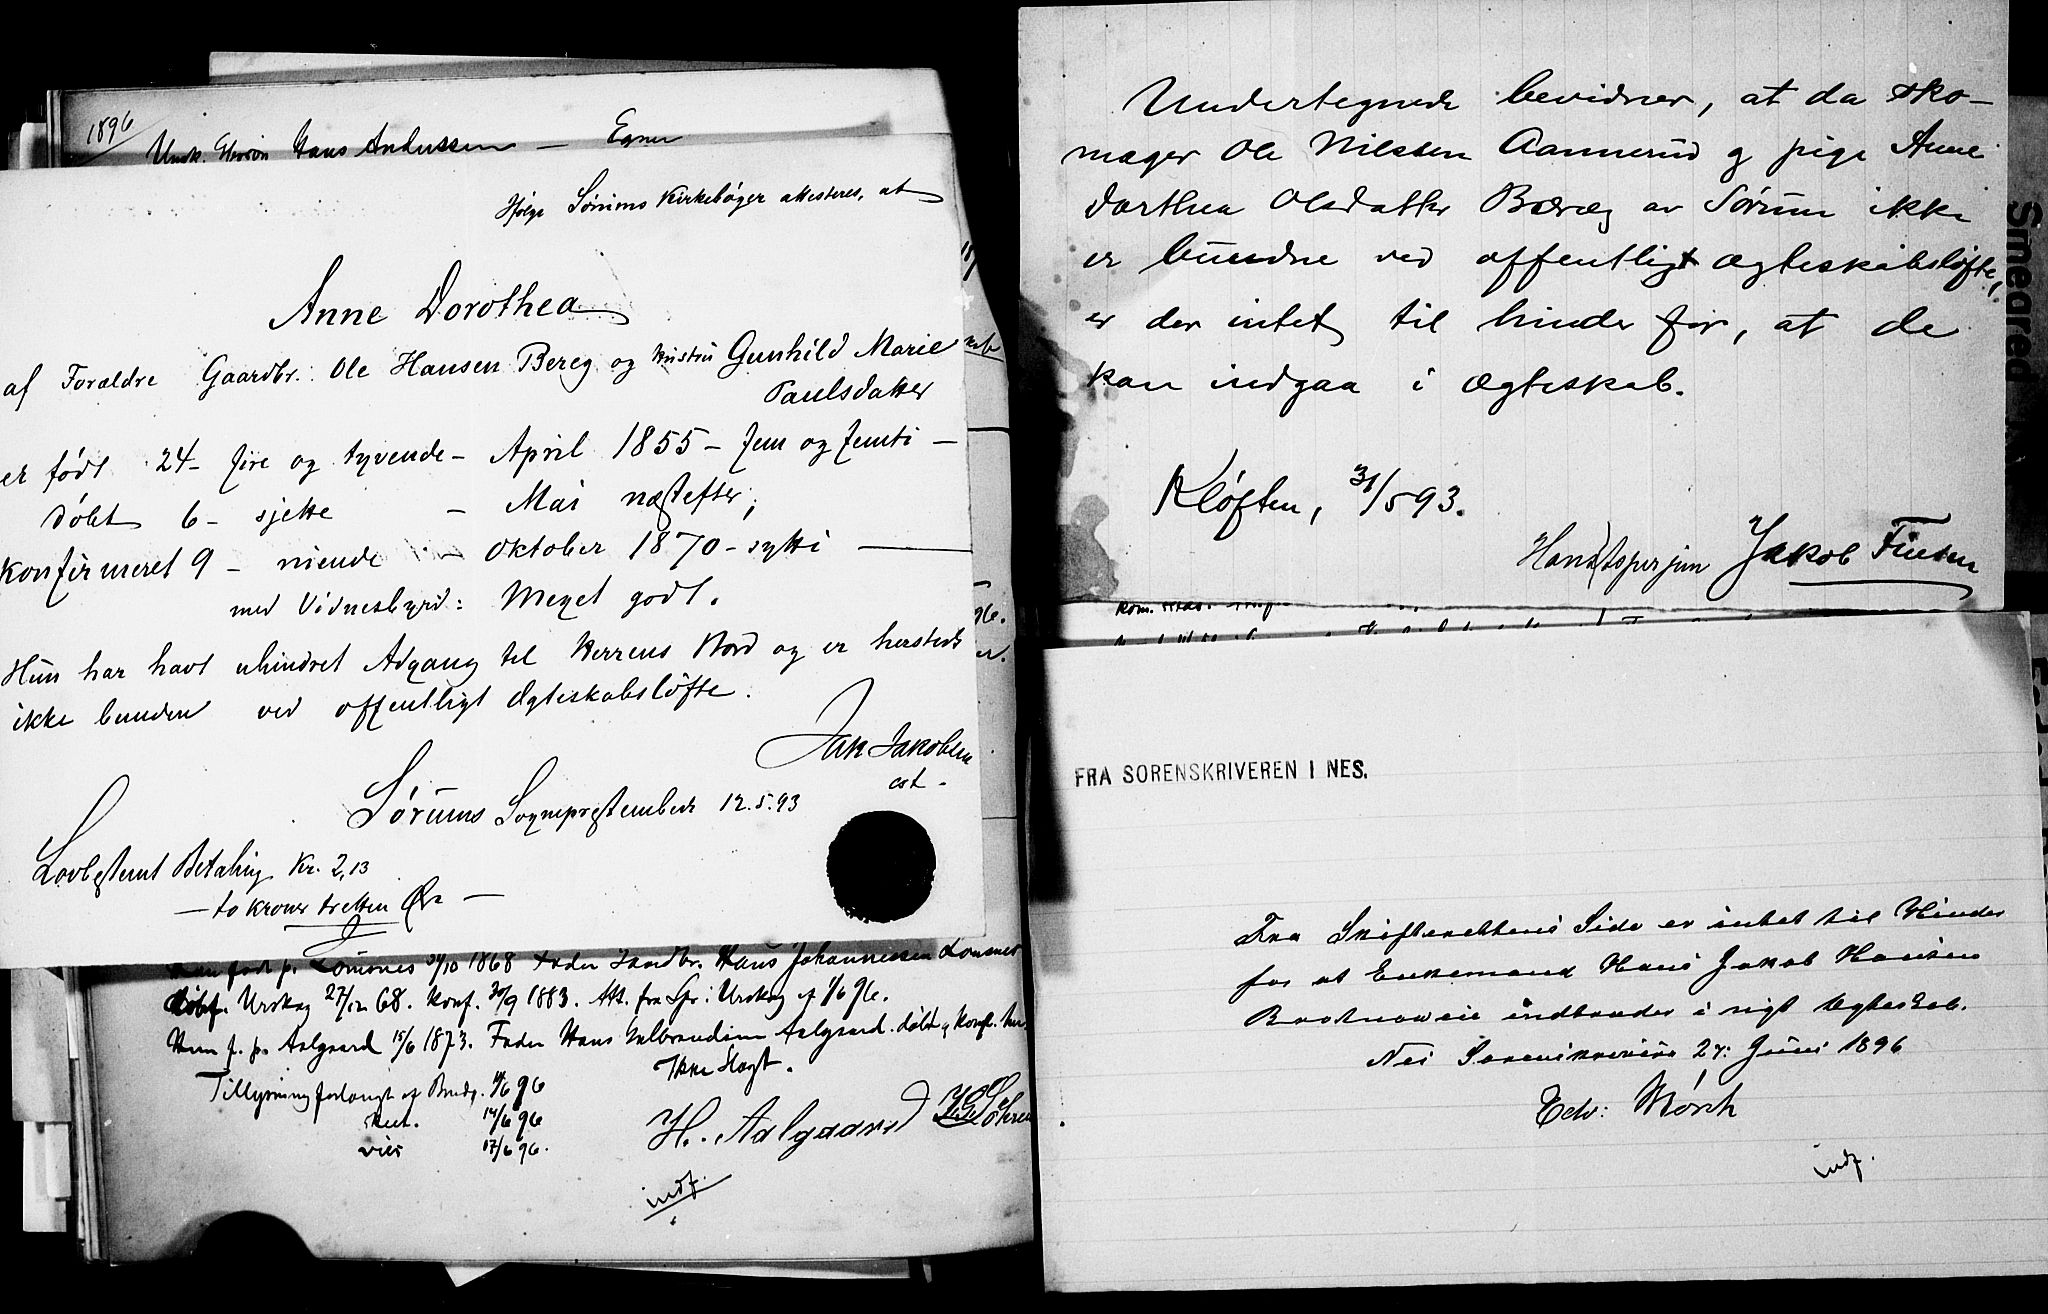 1896
Ungk. Hans Andersen — Egner
Ifølge Sørums Kirkebøger attesteres, at
Anne Dorothea
af Forældre Gaardbr. Ole Hansen Bereg og Hustru Gunhild Marie
Paulsdatter
er født 24 – fire og tyvende – April 1855 – fem og femti –
døbt 6 – sjette – Mai næstefter,
Konfirmeret 9 – niende – Oktober 1870 – sytti —
med Vidnesbyrd: Meget godt.
Hun har havt uhindret Adgang til Herrens Bord og er herfra
ikke bunden ved offentligt Ægteskabsløfte.
Jak Jakobsen
Sørums Sognepræstembede 12.5.93
Lovbestemt Betaling Kr. 2,13
— to kroner tretten Øre —
født p. 1868 Fader Gaardbr. Hans Johannessen
døbt. Urskog 27/12 68. Konf. 30/9 1883. Att. fra Spr. i Urskog af 4/6 96.
Hun f. p. Aalgaard 15/6 1873. Fader Hans Aalgaard. døbt og Konf. her
Tillysning forlangt af Brudg. 4/6 96
Ikke Slægt.
skeet. 14/6 96
viet 17/6 96.
H. Aalgaard
indf.
Undertegnede bevidner, at da sko-
mager Ole Nilssen Aamnerud og pige Anne
Dorthea Olsdatter Bæreg av Sørum ikke
er bundne ved offentligt ægteskabsløfte,
er der intet til hinder for, at de
kan indgaa i ægteskab.
Kløften, 31/5 93.
Jakob
FRA SORENSKRIVEREN I NES.
Fra Skifterettens Side er intet til Hinder
for at Enkemand Hans Jakob Hansen
indtræder i nyt Ægteskab.
Nes Sorenskriveri 27: Juni 1896
Edv: Mørch
indf.
Smeared